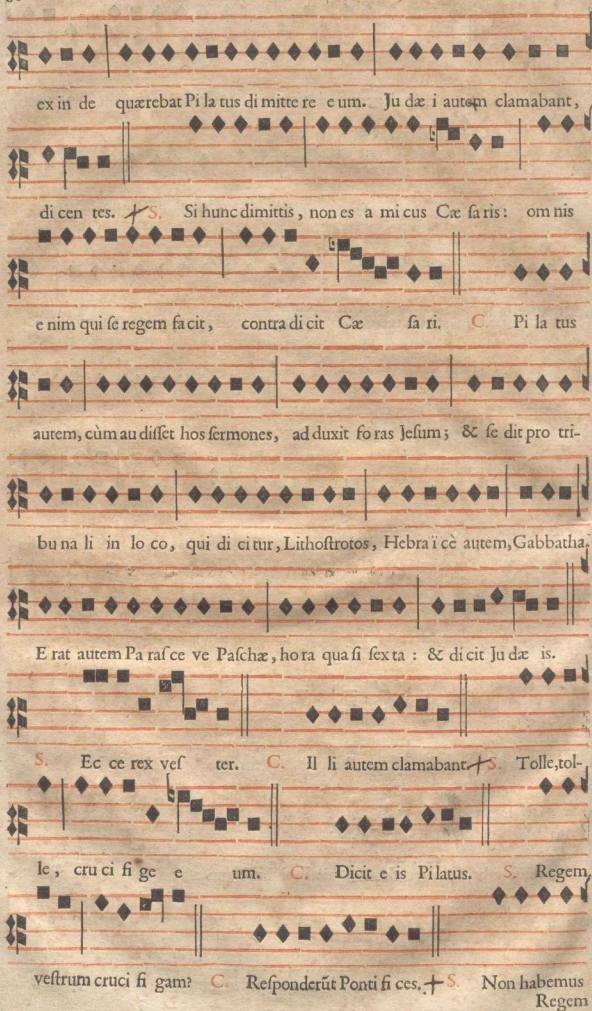 ex in de quærebat Pi la tus di mitte re e um. Ju dæ i autem clamabant,
di cen tes. S. Si hunc dimittis, non es a mi cus Cæ ſa ris: om nis
e nim qui ſe regem fa cit, contra di cit Cæ ſa ri. C. Pi la tus
autem, cùm au diſſet hos ſermones, ad duxit fo ras Jeſum; & ſe dit pro tri-
bu na li in lo co, qui di ci tur, Lithoſtrotos, Hebra ï cè autem, Gabbatha.
E rat autem Pa raſ ce ve Paſchæ, ho ra qua ſi ſex ta: & di cit Ju dæ is.
S. Ec ce rex veſ ter. C. Il li autem clamabant. S. Tolle, tol-
le, cru ci fi ge e um. C. Dicit e is Pilatus. S. Regem
veſtrum cruci fi gam? C. Reſponderūt Ponti fi ces. S. Non habemus
Regem